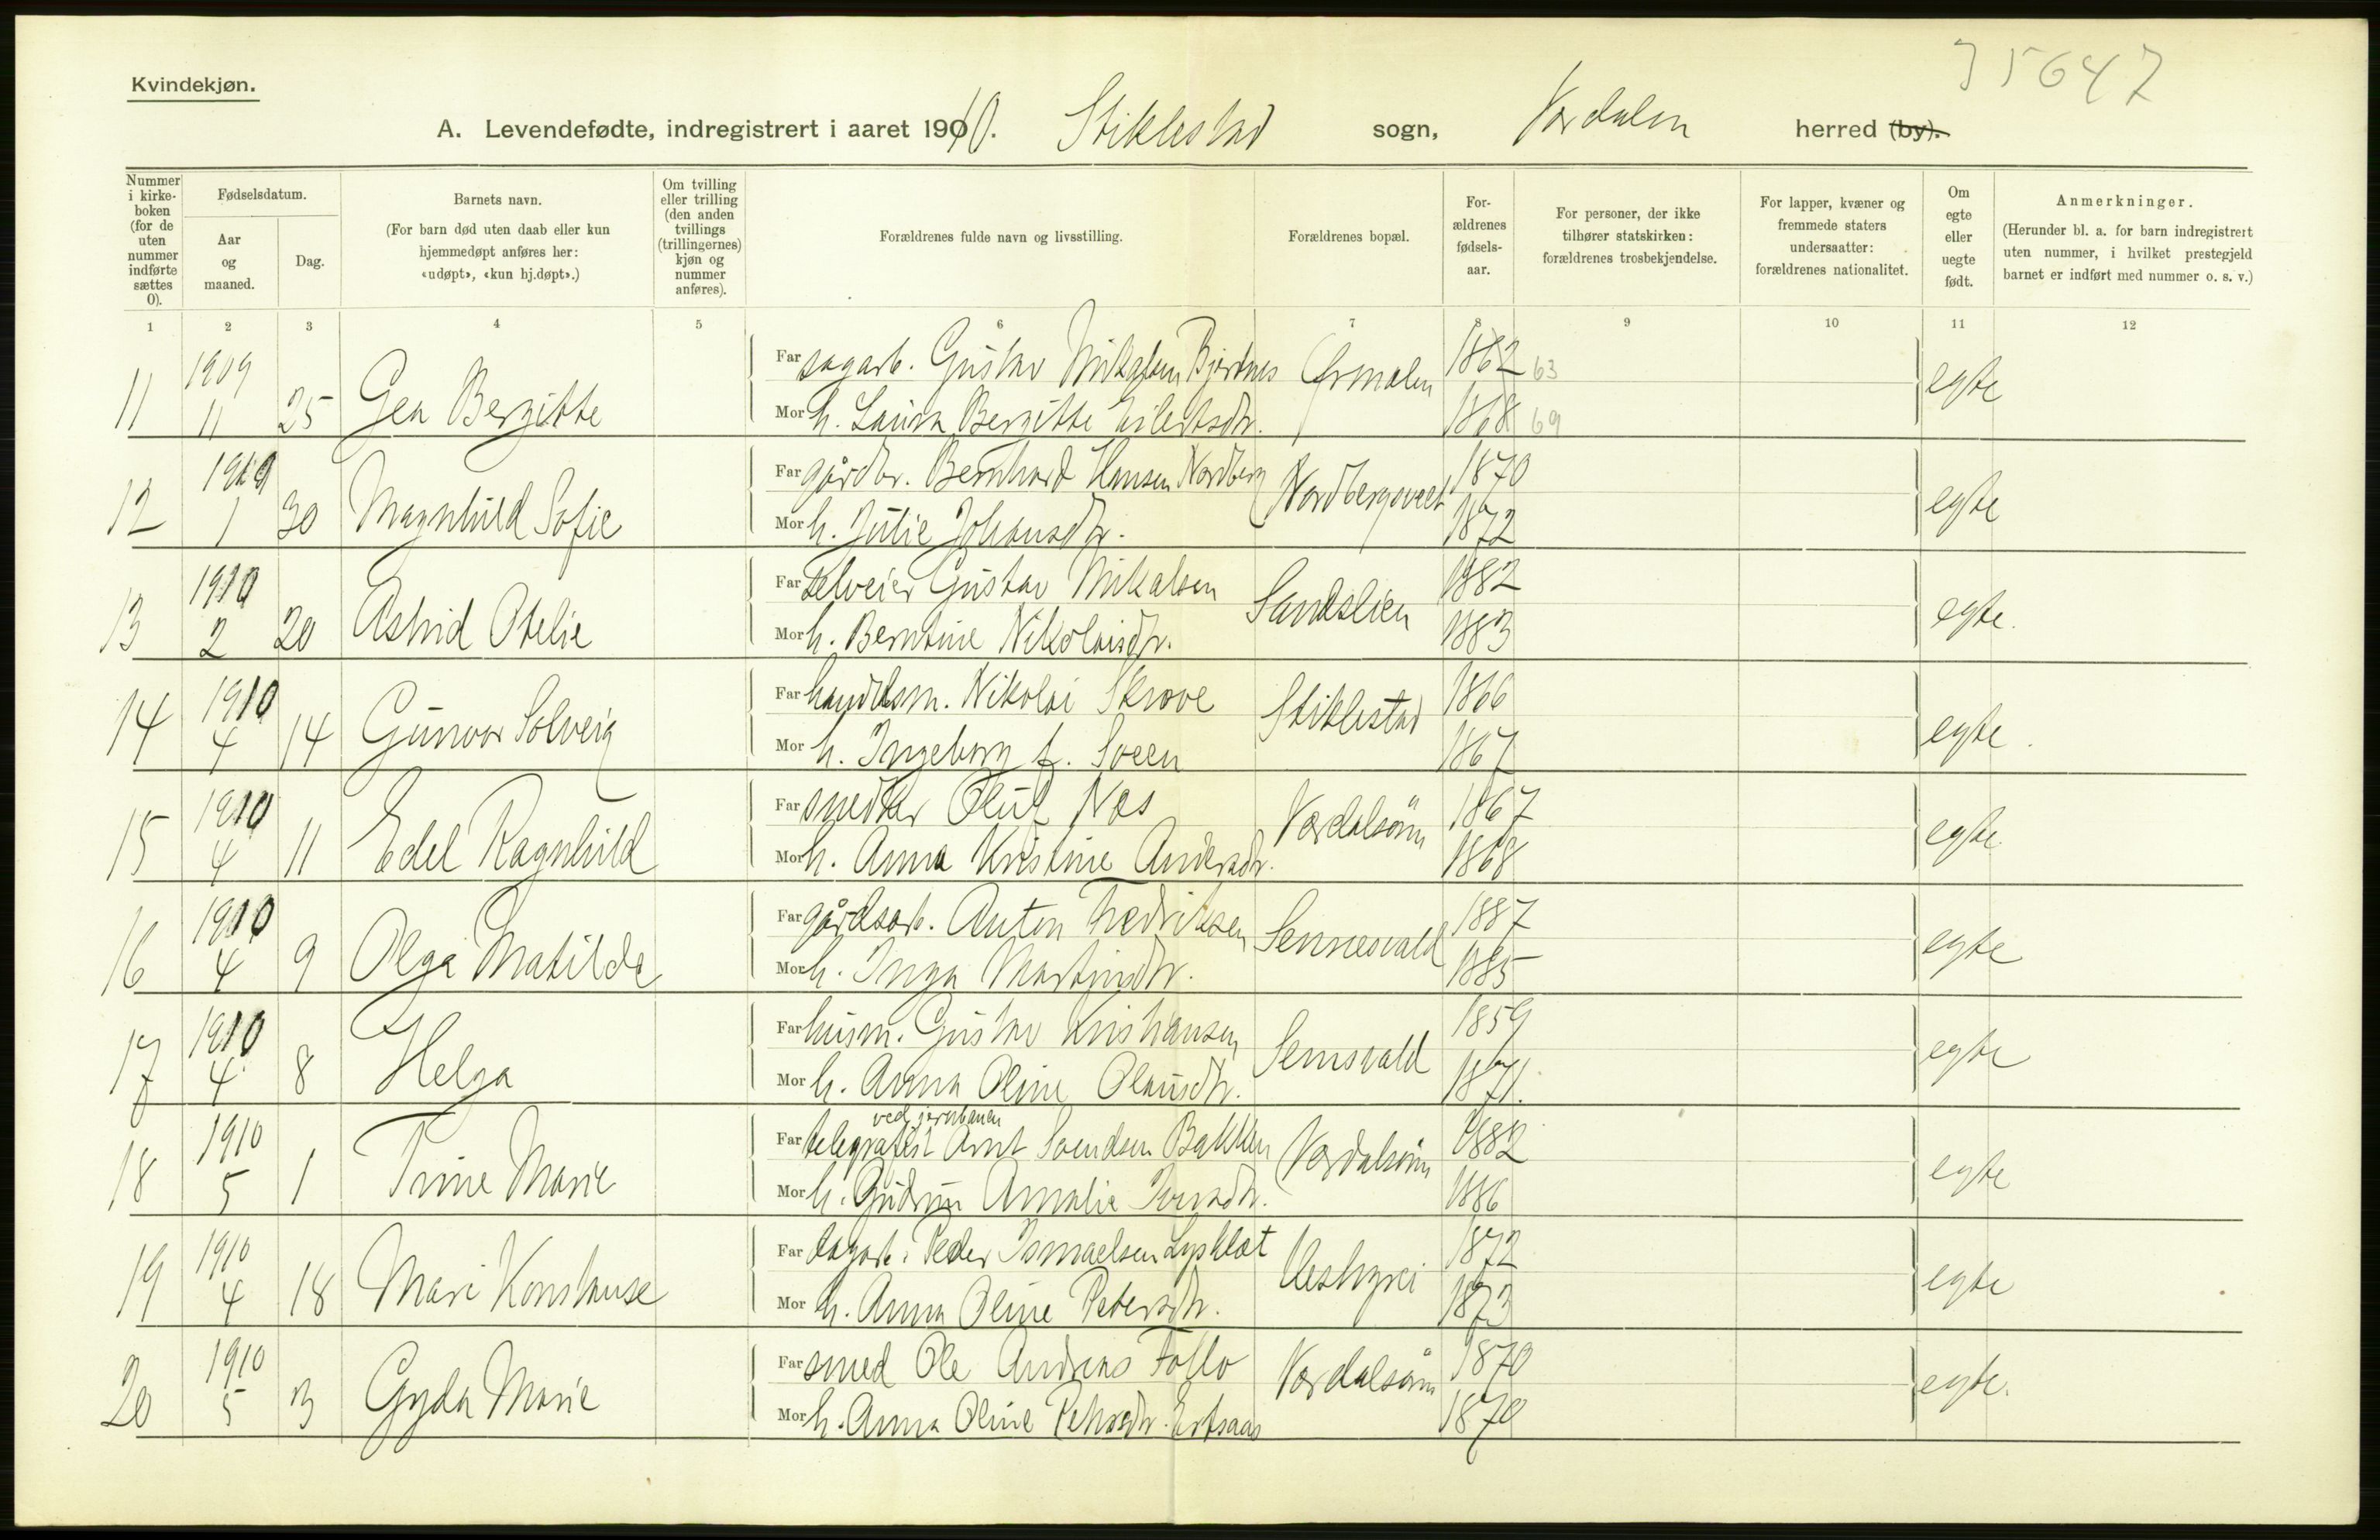 35647
Kvindekjøn.
A. Levendefødte, indregistrert i aaret 1910. Stiklestad sogn, Værdalen herred (by).
Nummer i kirke-boken (for de uten nummer indførte sættes 0).
Fødselsdatum.
Aar og maaned.
Dag.
Barnets navn.
(For barn død uten daab eller kun hjemmedøpt anføres her: «udøpt», «kun hj.døpt».)
Om tvilling eller trilling (den anden tvillings (trillingernes) kjøn og nummer anføres).
Forældrenes fulde navn og livsstilling.
Forældrenes bopæl.
For-ældrenes fødsels-aar.
For personer, der ikke tilhører statskirken: forældrenes trosbekjendelse.
For lapper, kvæner og fremmede staters undersaatter: forældrenes nationalitet.
Om egte eller uegte født.
Anmerkninger.
(Herunder bl. a. for barn indregistrert uten nummer, i hvilket prestegjeld barnet er indført med nummer o. s. v.)
1 2 3 4 5 6 7 8 9 10 11 12
11 1909 11 25 Gea Bergitte
Far sagarb. Gustav Mikalsen Bjørknes Ørmelen 1862 63 egte
Mor h. Laura Bergitte Eilertsdtr. 1868 69
12 1 30 Magnhild Sofie
Far gårdbr. Bernhard Hansen Nordberg 1870 egte
Mor h. Julie Johansdtr. 1872
13 1910 2 20 Astrid Otelie
Far selveier Gustav Mikalsen Sandslien 1882 egte.
Mor h. Berntine Nikolaisdtr. 1883
14 1910 4 14 Gunvor Solveig
Far handelsm. Nikolai Skrove Stiklestad 1866 egte.
Mor h. Ingeborg f. Sveen 1867
15 1910 4 11 Edel Ragnhild
Far snedker Oluf Næs Værdalsøren 1867 egte
Mor h. Anna Kristine Andersdtr. 1868
16 1910 4 9 Olga Matilde
Far gårdsarb. Anton Fredriksen 1887 egte
Mor h. Inga Martinsdtr. 1885
17 1910 4 8 Helga
Far husm. Gustav Kristiansen Semsvald 1859 egte
Mor h. Anna Oline Olausdtr. 1871.
18 1910 5 1 Trine Marie
ved jernbanen
Far telegrafist Arnt Svendsen Bakken Værdalsøren 1882 egte
Mor h. Gudrun Amalie Iversdtr. 1886
19 1910 4 18 Mari Konstanse
Far dagarb. Peder Ismaelsen 1872 egte
Mor h. Anna Oline Petersdtr. 1873
20 1910 5 3 Gyda Marie
Far smed Ole Andreas Follo Værdalsøren 1870 egte.
Mor h. Anna Oline Petersdtr. Ertsaas 1870